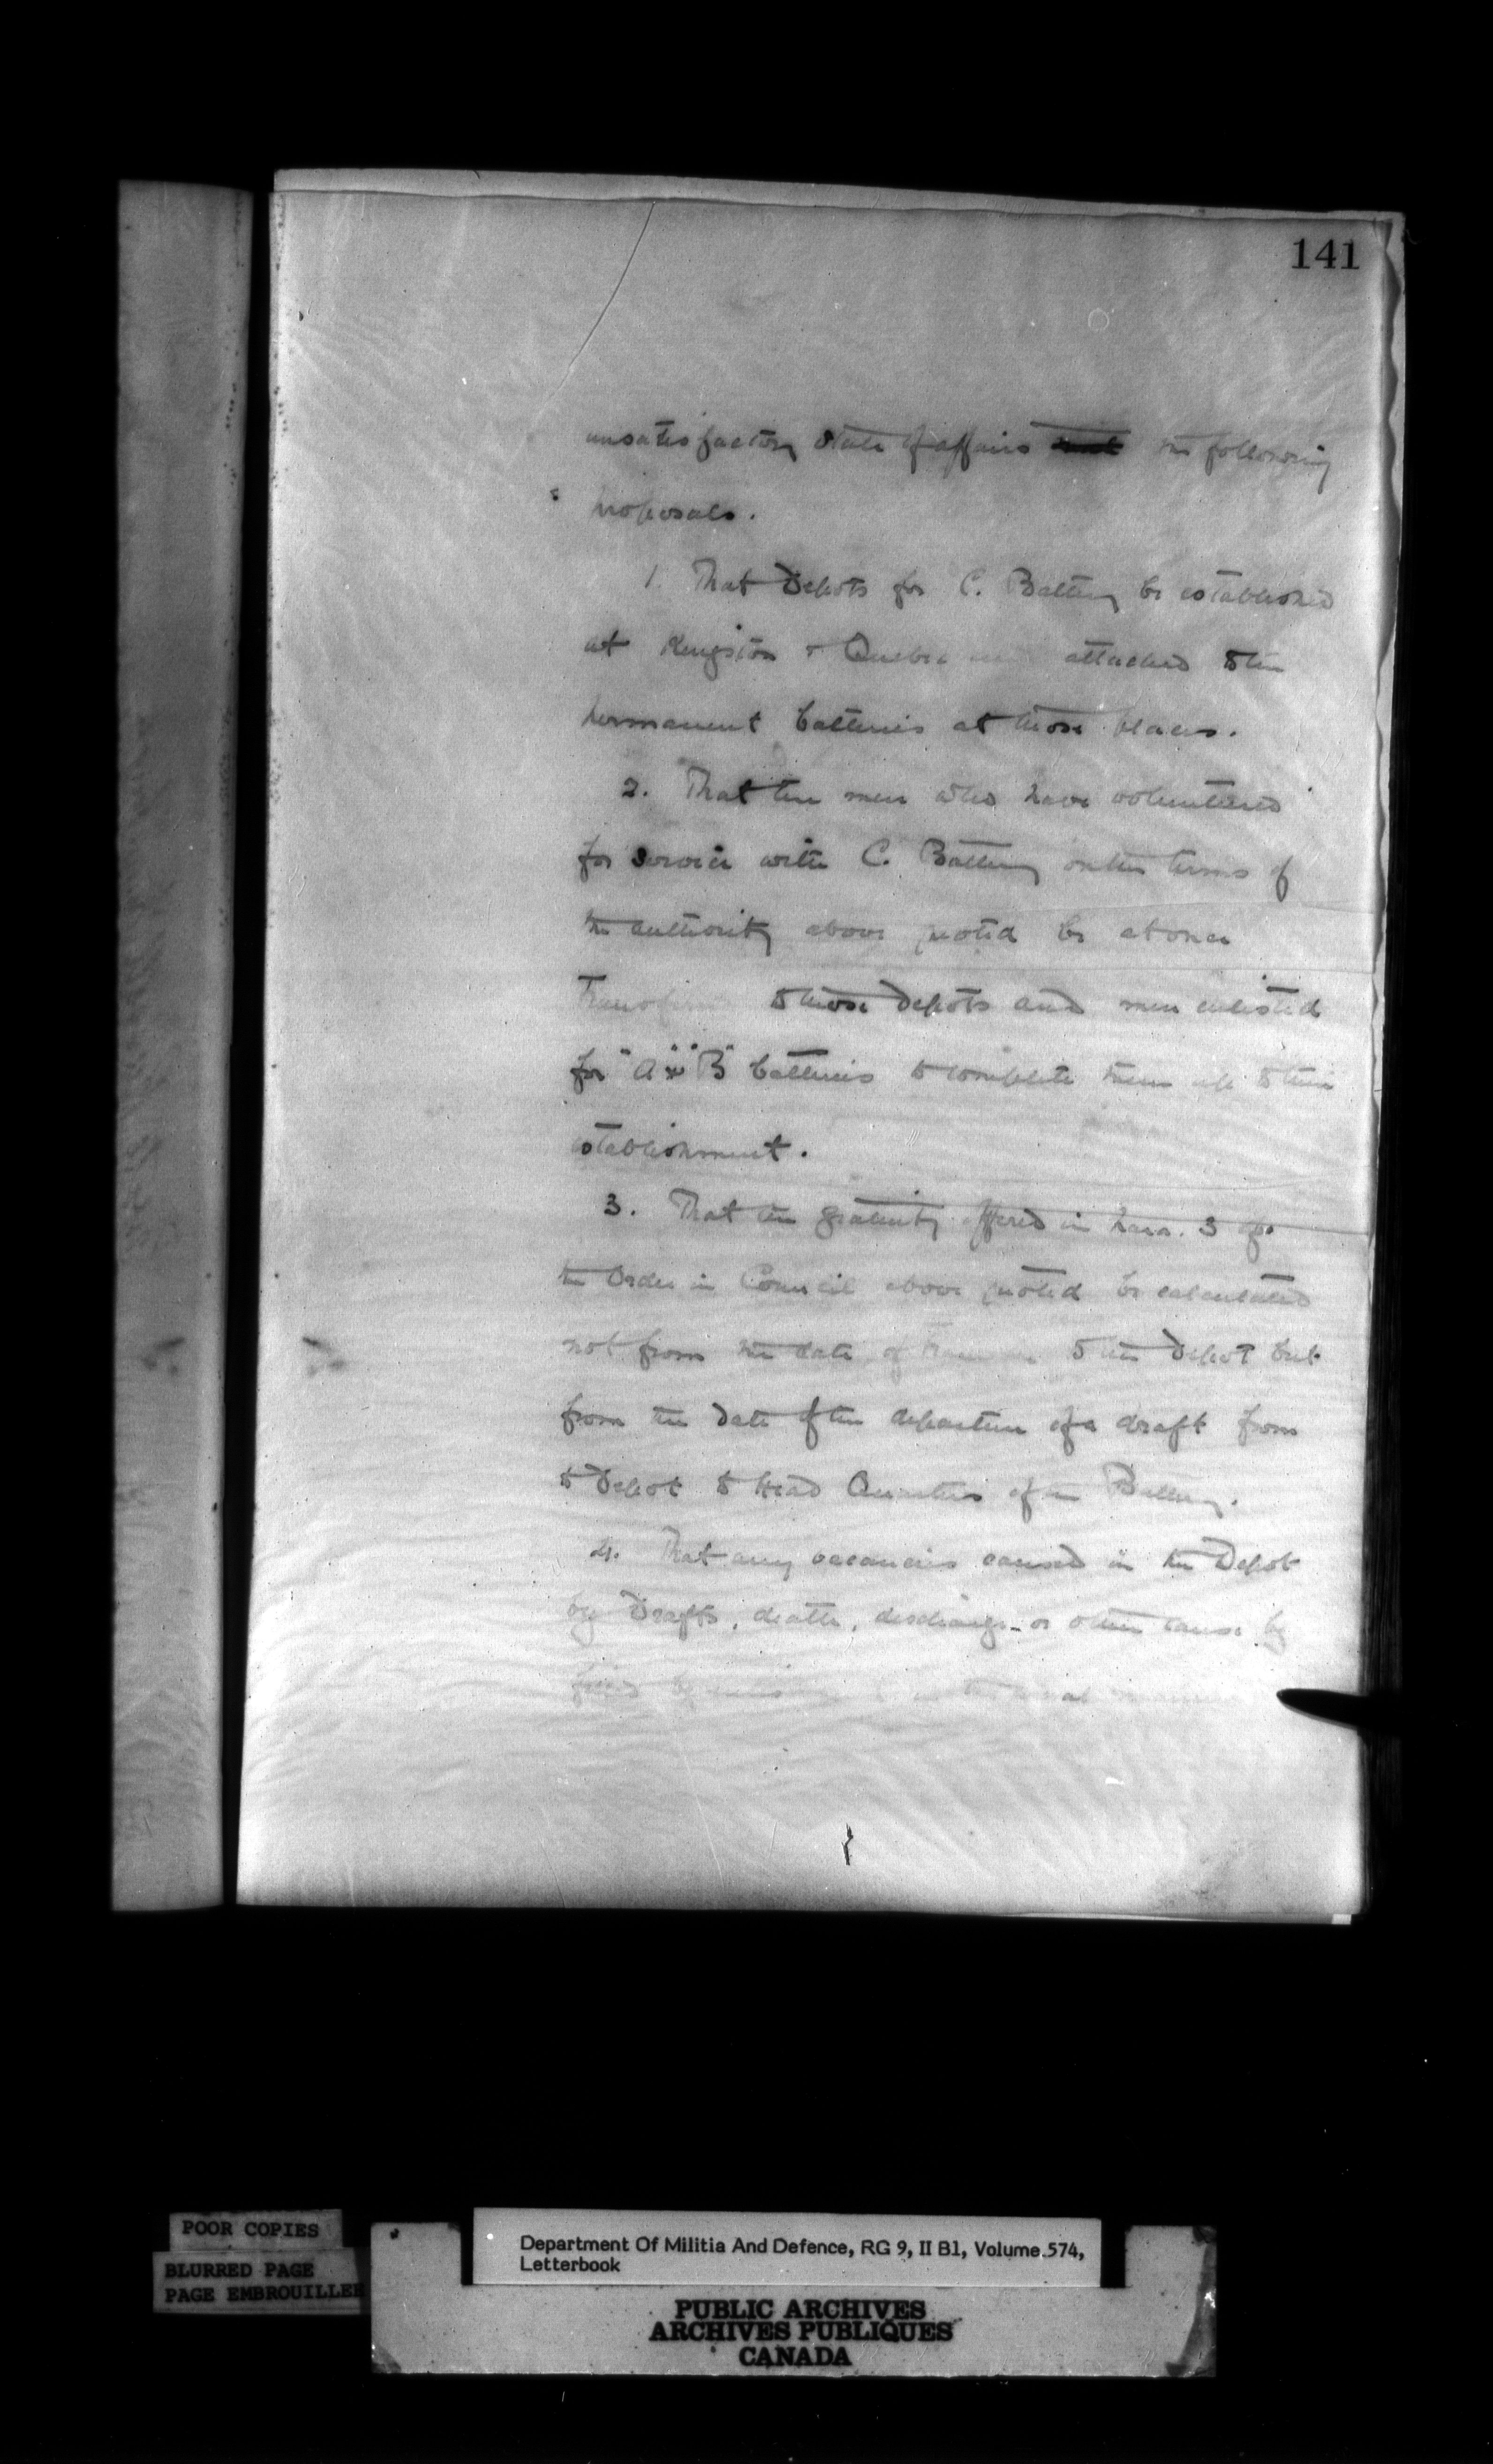 141
unsatisfactory state of affairs the following
proposals.
1. That Depots for C. Battery be established
at Kingston & Quebec attached to the
permanent batteries at those places.
2. That the men who have volunteered
for service with C. Battery on the terms of
the authority above quoted be at once
to those Depots and men enlisted
for "A" & "B" batteries to complete them up to their
establishment.
3. That the gratuity offered in para. 3 of
the Order in Council above quoted be calculated
not from the date of to the Depot but
from the date of the departure of a draft from
to Depot to Head Quarters of the Battery.
4. That any vacancies caused in the Depot
by Drafts, death, discharge or other cause be
filled by the usual manner
POOR COPIES
BLURRED PAGE
PAGE EMBROUILLEE
Department Of Militia And Defence, RG 9, II B1, Volume.574,
Letterbook
PUBLIC ARCHIVES
ARCHIVES PUBLIQUES
CANADA